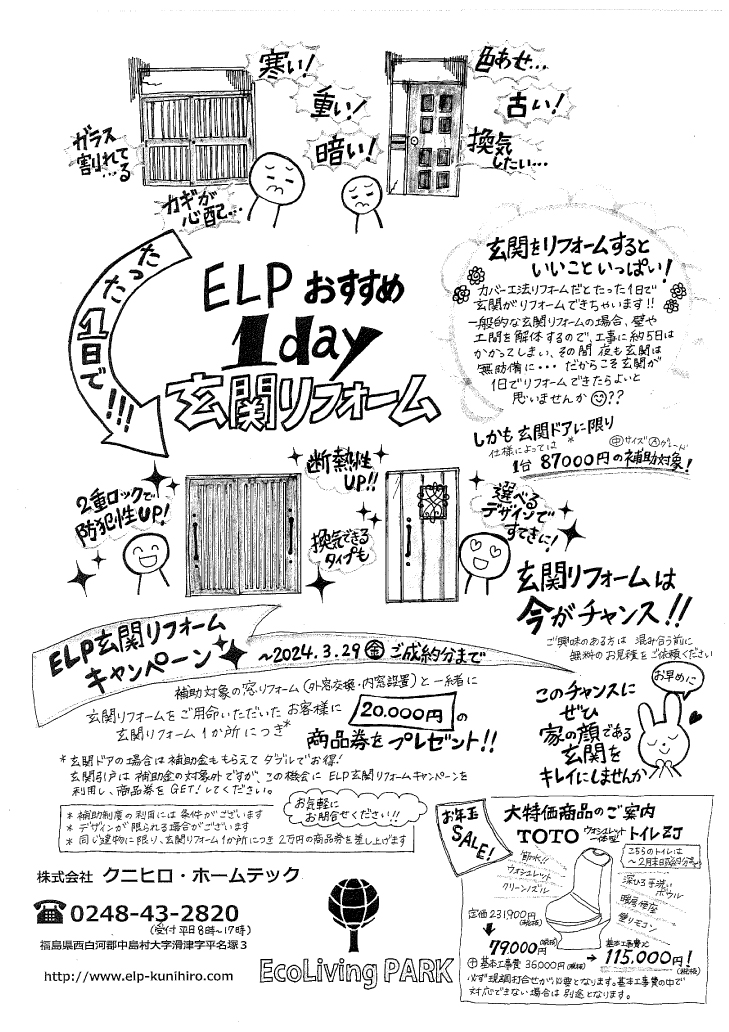 寒い!
重い!
暗い!
ガラス
割れて
…る
カギが
心配…
色あせ…
古い!
換気
したい…
たった
1日で!!!
ELP おすすめ
1day
玄関リフォーム
玄関をリフォームすると
いいこといっぱい!
カバー工法リフォームだとたった1日で
玄関がリフォームできちゃいます!!
一般的な玄関リフォームの場合、壁や
土間を解体するので、工事に約5日は
かかってしまい、その間 夜も玄関は
無防備に・・・ だからこそ玄関が
1日でリフォームできたらよいと
思いませんか??
しかも玄関ドアに限り
仕様によっては * 中サイズ Aグレード
1台 87000円の補助対象!
2重ロックで
防犯性UP!
断熱性
UP!!
換気できる
タイプも
選べる
デザインで
すてきに!
玄関リフォームは
今がチャンス!!
ご興味のある方は 混み合う前に
無料のお見積をご依頼ください
ELP玄関リフォーム
キャンペーン
~2024.3.29金ご成約分まで
補助対象の窓リフォーム(外窓交換・内窓設置)と一緒に
玄関リフォームをご用命いただいたお客様に
玄関リフォーム1か所につき*
20.000円の
商品券をプレゼント!!
*玄関ドアの場合は補助金ももらえてダブルでお得!
玄関引戸は補助金の対象外ですが、この機会に ELP玄関リフォームキャンペーンを
利用し、商品券をGET!してください。
お早めに
このチャンスに
ぜひ
家の顔である
玄関を
キレイにしませんか
お気軽に
お問合せください!!
* 補助制度の利用には条件がございます
* デザインが限られる場合がございます
* 同じ建物に限り、玄関リフォーム1か所につき2万円の商品券を差し上げます
株式会社 クニヒロ・ホームテック
☎0248-43-2820
(受付 平日8時~17時)
福島県西白河郡中島村大字滑津字平名塚3
http://www.elp-kunihiro.com/
EcoLiving PARK
お年玉
SALE!
大特価商品のご案内
TOTO ウォシュレット一体型 トイレZJ
こちらのトイレは
~2月末日成約分まで
節水!!
ウォシュレット
クリーンノズル
深ひろ手洗い
ボウル
暖房便座
壁リモコン
定価231900円(税抜)
79000円(税抜)
+基本工事費36000円(税抜)
基本工事費込
115,000円!
(税抜)
必ず現調打合せが必要となります。基本工事費の中で
対応できない場合は別途となります。